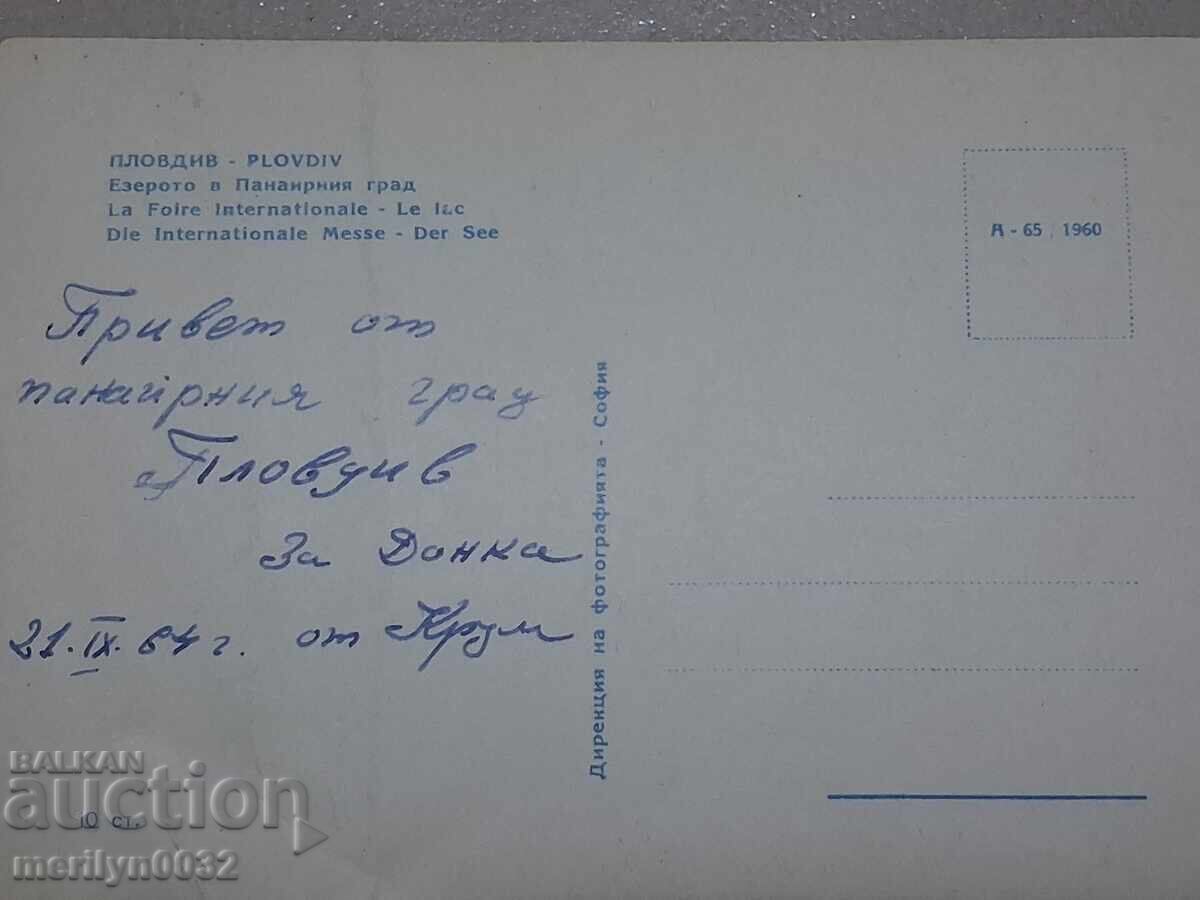 ПЛОВДИВ - PLOVDIV
Езерото в Панаирния град
La Foire Internationale - Le lac
Die Internationale Messe - Der See
А - 65 1960
Привет от
панаирния град
Пловдив
За Донка
21.IX.64 г. от Крум
Дирекция на фотографията - София
10 ст.
BALKAN
auction
merilyn0032